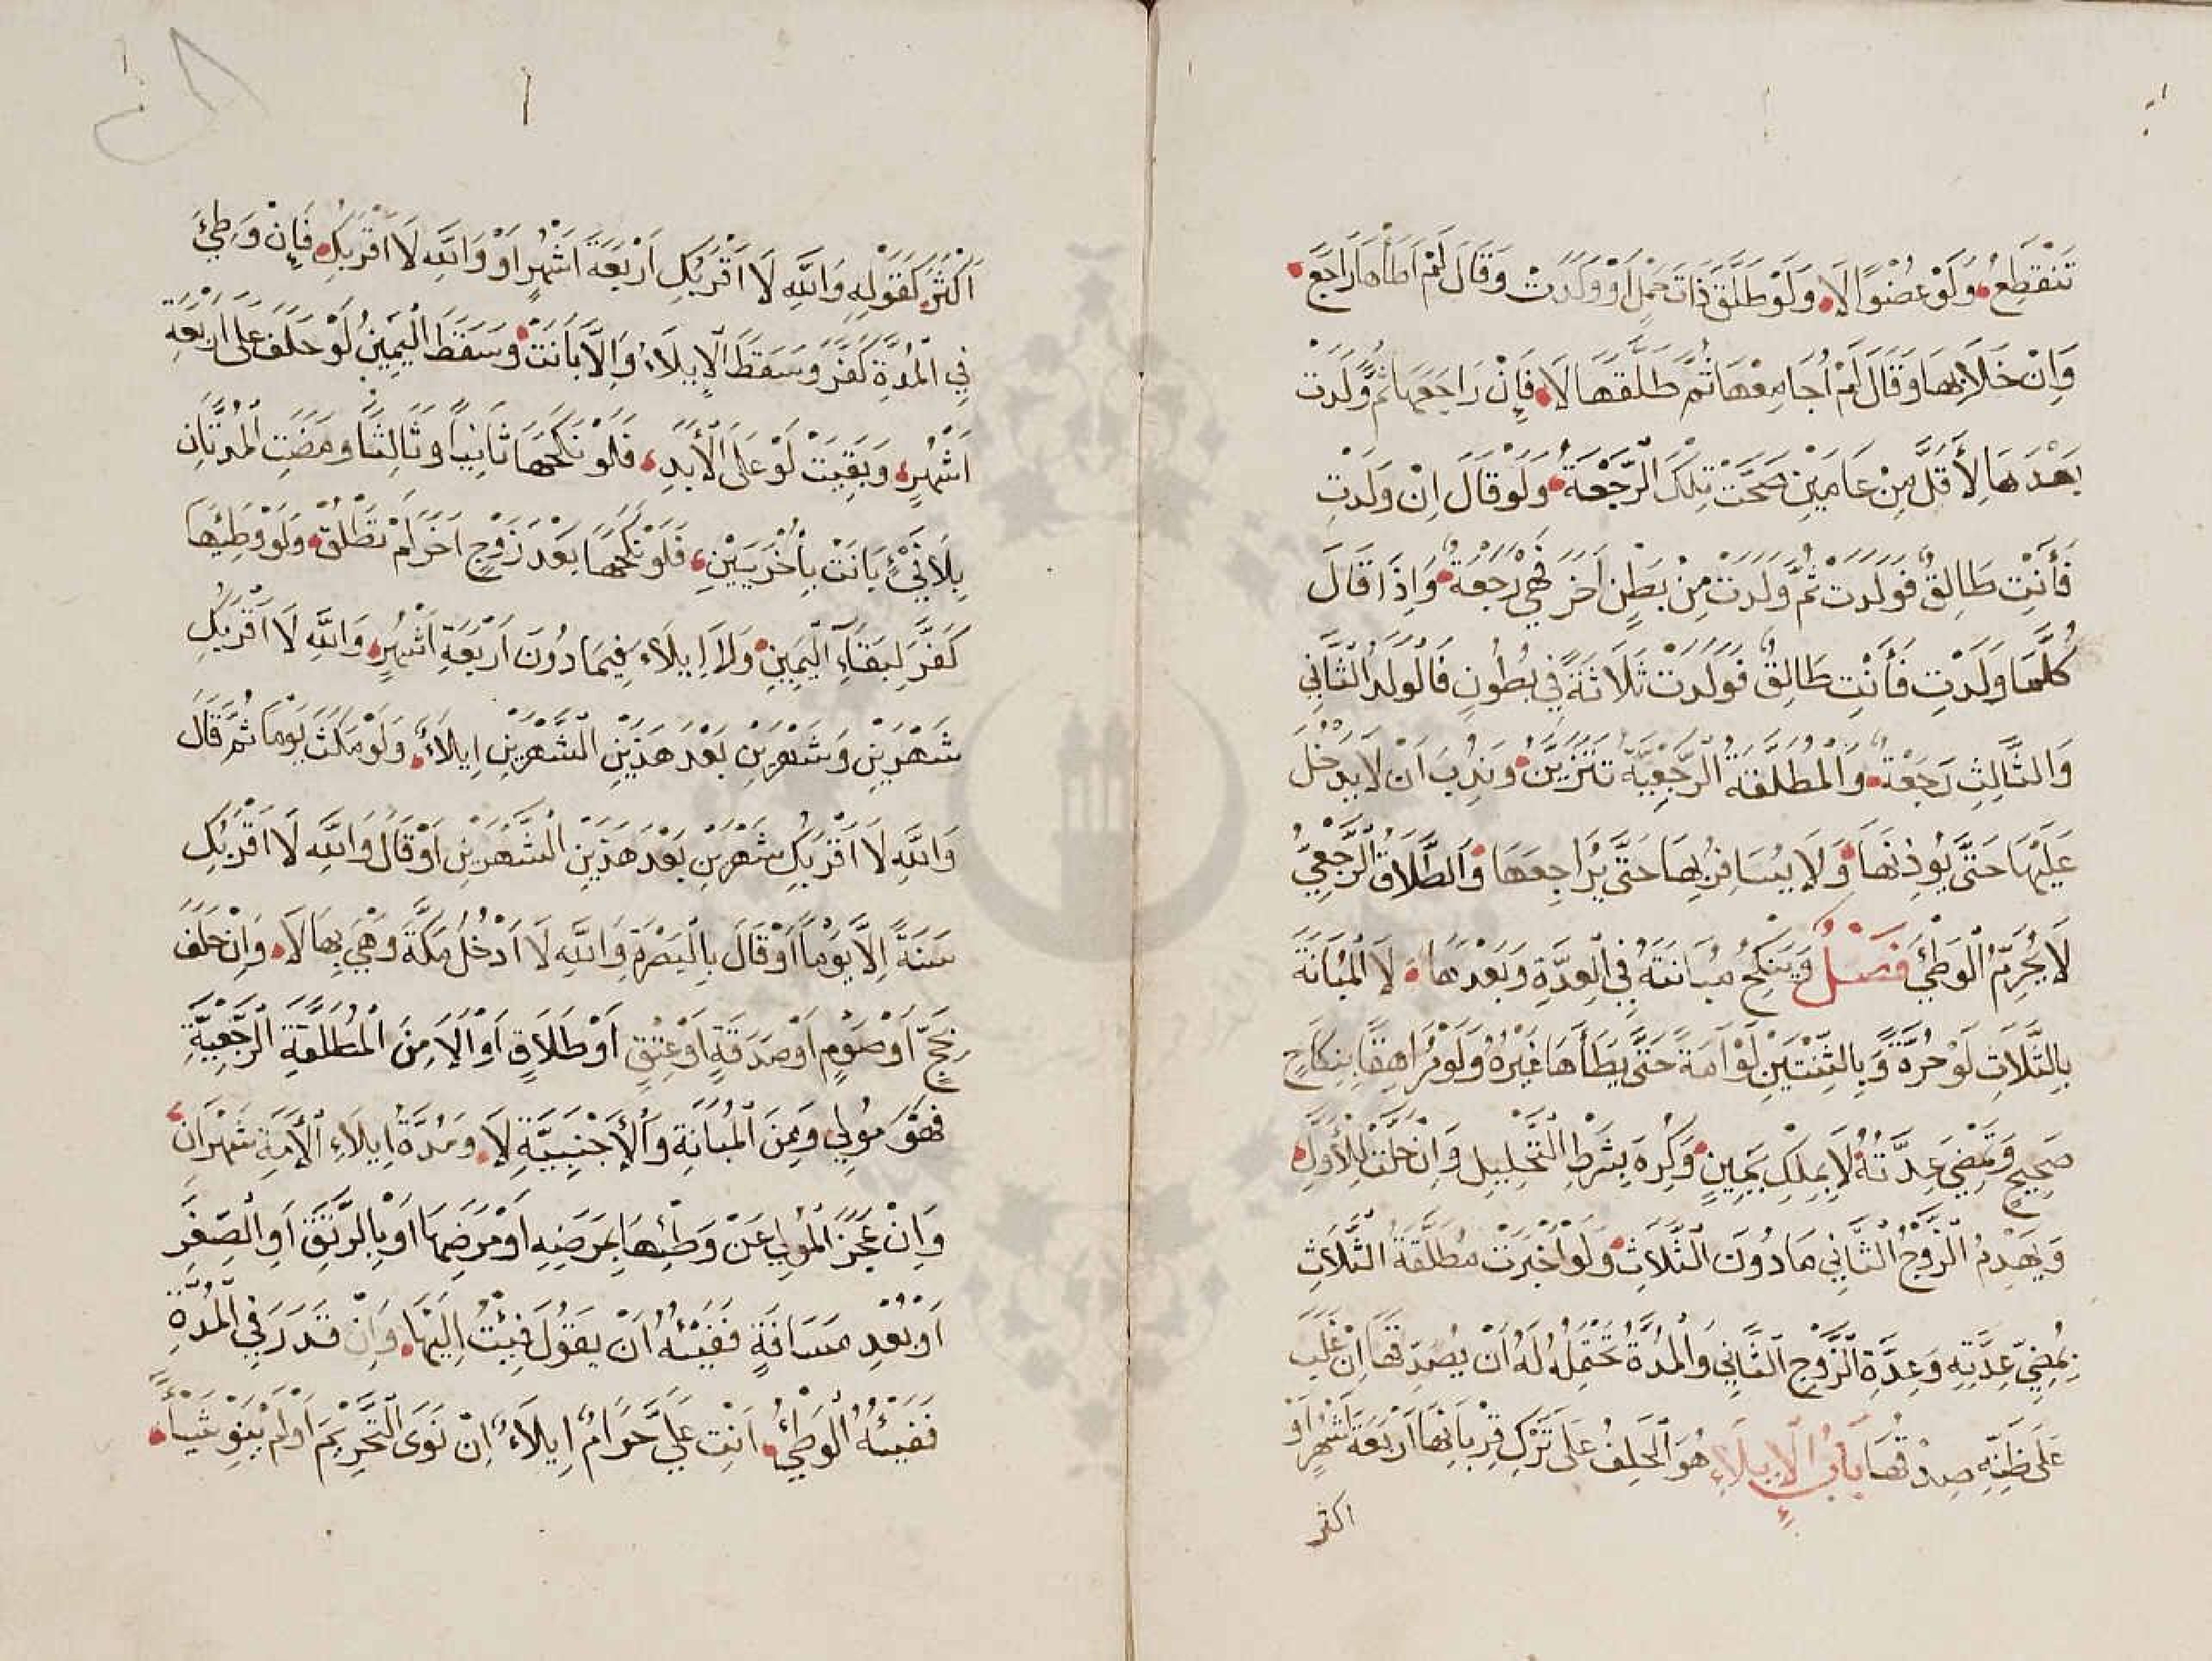 تَنْقَطِعُ وَلَوْ عُضْوًا لَا وَلَوْ طَلَّقَ ذَاتَ حَمْلٍ اَوْ وَلَدَتْ وَقَالَ لَمْ اَطَأْهَا رَاجَعَ
وَاِنْ خَلَا بِهَا وَقَالَ لَمْ اُجَامِعْهَا ثُمَّ طَلَّقَهَا لَا فَاِنْ رَاجَعَهَا ثُمَّ وَلَدَتْ
بَعْدَهَا لِأَقَلَّ مِنْ عَامَيْنِ صَحَّتْ تِلْكَ الرَّجْعَةُ وَلَوْ قَالَ اِنْ وَلَدْتِ
فَأَنْتِ طَالِقٌ فَوَلَدَتْ ثُمَّ وَلَدَتْ مِنْ بَطْنٍ اَخَرَ فَهِيَ رَجْعَةٌ وَاِذَا قَالَ
كُلَّمَا وَلَدْتِ فَأَنْتِ طَالِقٌ فَوَلَدَتْ ثَلَاثَةً فِي بُطُونٍ فَالْوَلَدُ الثَّانِي
وَالثَّالِثِ رَجْعَةٌ وَالْمُطَلَّقَةُ الرَّجْعِيَّةُ تَتَزَيَّنُ وَنُدِبَ اَنْ لَا يَدْخُلَ
عَلَيْهَا حَتَّى يُؤْذِنَهَا وَلَا يُسَافِرُ بِهَا حَتَّى يُرَاجِعَهَا وَالطَّلَاقُ الرَّجْعِيُّ
لَا يُحَرِّمُ الْوَطْئَ فَصْلٌ وَيَنْكِحُ مُبَانَتَهُ فِي الْعِدَّةِ وَبَعْدَهَا لَا الْمُبَانَةَ
بِالثَّلَاثِ لَوْ حُرَّةً وَبِالثِّنْتَيْنِ لَوْ اَمَةً حَتَّى يَطَأَهَا غَيْرُهُ وَلَوْ مُرَاهِقًا بِنِكَاحٍ
صَحِيحٍ وَتَمْضِيَ عِدَّتُهُ لَا بِمِلْكِ يَمِينٍ وَكُرِهَ بِشَرْطِ التَّحْلِيلِ وَاِنْ حَلَّتْ لِلْأَوَّلِ
وَيَهْدِمُ الزَّوْجُ الثَّانِي مَا دُونَ الثَّلَاثِ وَلَوْ اَخْبَرَتْ مُطَلَّقَةُ الثَّلَاثِ
بِمُضِيِّ عِدَّتِهِ وَعِدَّةِ الزَّوْجِ الثَّانِي وَالْمُدَّةُ تَحْتَمِلُهُ لَهُ اَنْ يُصَدِّقَهَا اِنْ غَلَبَ
عَلَى ظَنِّهِ صِدْقُهَا بَابُ الْإِيلَاءِ هُوَ الْحَلِفُ عَلَى تَرْكِ قِرْبَانِهَا اَرْبَعَةَ اَشْهُرٍ اَوْ
اكثر
اَكْثَرَ كَقَوْلِهِ وَاللَّهِ لَا اَقْرَبُكِ اَرْبَعَةَ اَشْهُرٍ اَوْ وَاللَّهِ لَا اَقْرَبُكِ فَاِنْ وَطِئَ
فِي الْمُدَّةِ كَفَّرَ وَسَقَطَ الْإِيلَاءُ وَاِلَّا بَانَتْ وَسَقَطَ الْيَمِينُ لَوْ حَلَفَ عَلَى اَرْبَعَةِ
اَشْهُرٍ وَبَقِيَتْ لَوْ عَلَى الْأَبَدِ فَلَوْ نَكَحَهَا ثَانِيًا وَثَالِثًا وَمَضَتِ الْمُدَّتَانِ
بِلَا فَيْءٍ بَانَتْ بِأُخْرَيَيْنِ فَلَوْ نَكَحَهَا بَعْدَ زَوْجٍ اَخَرَ لَمْ تَطْلُقْ وَلَوْ وَطِئَهَا
كَفَّرَ لِبَقَاءِ الْيَمِينِ وَلَا اِيلَاءَ فِيمَا دُونَ اَرْبَعَةِ اَشْهُرٍ وَاللَّهِ لَا اَقْرَبُكِ
شَهْرَيْنِ وَشَهْرَيْنِ بَعْدَ هَذَيْنِ الشَّهْرَيْنِ اِيلَاءٌ وَلَوْ مَكَثَ يَوْمًا ثُمَّ قَالَ
وَاللَّهِ لَا اَقْرَبُكِ شَهْرَيْنِ بَعْدَ هَذَيْنِ الشَّهْرَيْنِ اَوْ قَالَ وَاللَّهِ لَا اَقْرَبُكِ
سَنَةً اِلَّا يَوْمًا اَوْ قَالَ بِالْبَصْرَةِ وَاللَّهِ لَا اَدْخُلُ مَكَّةَ وَهِيَ بِهَا لَا وَاِنْ حَلَفَ
بِحَجٍّ اَوْ صَوْمٍ اَوْ صَدَقَةٍ اَوْ عِتْقٍ اَوْ طَلَاقٍ اَوْ الَا مِنَ الْمُطَلَّقَةِ الرَّجْعِيَّةِ
فَهُوَ مُولِي وَمِنَ الْمُبَانَةِ وَالْأَجْنَبِيَّةِ لَا وَمُدَّةُ اِيلَاءِ الْأَمَةِ شَهْرَانِ
وَاِنْ عَجَزَ الْمُولِي عَنْ وَطْئِهَا بِمَرَضِهِ اَوْ مَرَضِهَا اَوْ بِالرَّتَقِ اَوِ الصِّغَرِ
اَوْ بُعْدِ مَسَافَةٍ فَفَيْئُهُ اَنْ يَقُولَ فِئْتُ اِلَيْهَا وَاِنْ قَدَرَ فِي الْمُدَّةِ
فَفَيْئُهُ الْوَطْئُ اَنْتِ عَلَيَّ حَرَامٌ اِيلَاءٌ اِنْ نَوَى التَّحْرِيْمَ اَوْ لَمْ يَنْوِ شَيْأً